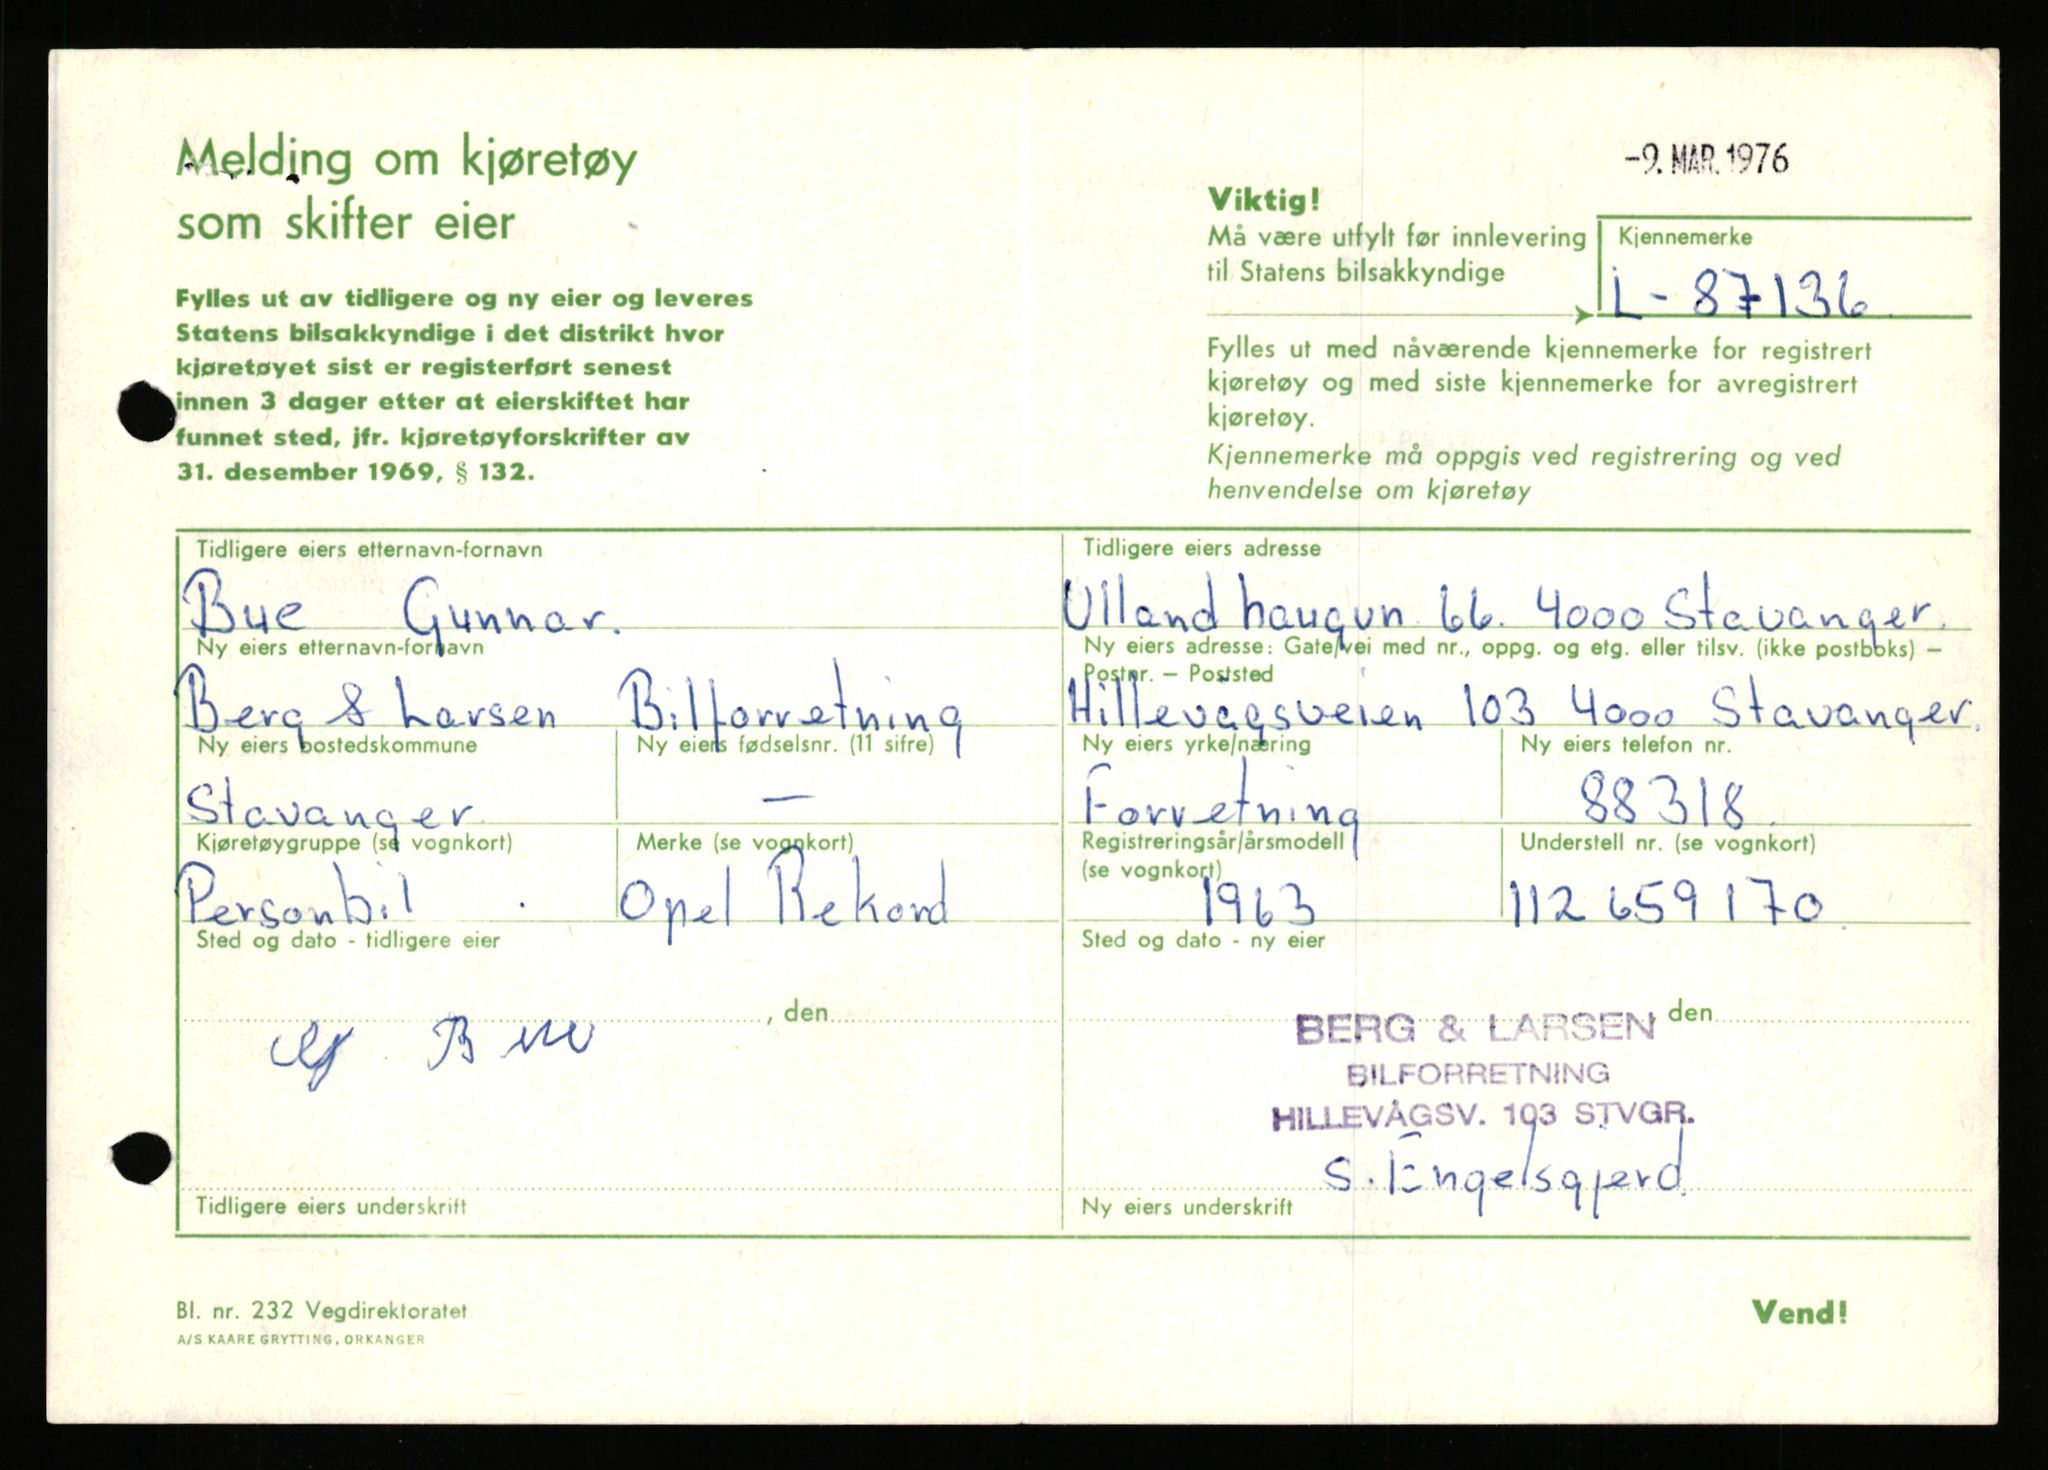 Melding om kjøretøy
som skifter eier
Fylles ut av tidligere og ny eier og leveres
Statens bilsakkyndige i det distrikt hvor
kjøretøyet sist er registerført senest
innen 3 dager etter at eierskiftet har
funnet sted, jfr. kjøretøyforskrifter av
31. desember 1969, § 132.
-9. MAR. 1976
Viktig!
Må være utfylt før innlevering
til Statens bilsakkyndige
Kjennemerke
L - 87136
Fylles ut med nåværende kjennemerke for registrert
kjøretøy og med siste kjennemerke for avregistrert
kjøretøy.
Kjennemerke må oppgis ved registrering og ved
henvendelse om kjøretøy
Tidligere eiers etternavn-fornavn
Bue Gunnar.
Tidligere eiers adresse
Ulland haugvn 66. 4000 Stavanger.
Ny eiers etternavn-fornavn
Berg & Larsen Bilforretning
Ny eiers adresse: Gate/vei med nr., oppg. og etg. eller tilsv. (ikke postboks) –
Postnr. – Poststed
Hillevågsveien 103 4000 Stavanger.
Ny eiers bostedskommune
Stavanger
Ny eiers fødselsnr. (11 sifre)
—
Ny eiers yrke/næring
Forretning
Ny eiers telefon nr.
88318.
Kjøretøygruppe (se vognkort)
Personbil
Merke (se vognkort)
Opel Rekord
Registreringsår/årsmodell
(se vognkort)
1963
Understell nr. (se vognkort)
112 659 170.
Sted og dato - tidligere eier
, den
Bue
Tidligere eiers underskrift
Sted og dato - ny eier
den
BERG & LARSEN
BILFORRETNING
HILLEVÅGSV. 103 STVGR.
S. Engelsgjerd
Ny eiers underskrift
Bl. nr. 232 Vegdirektoratet
A/S KAARE GRYTTING, ORKANGER
Vend!